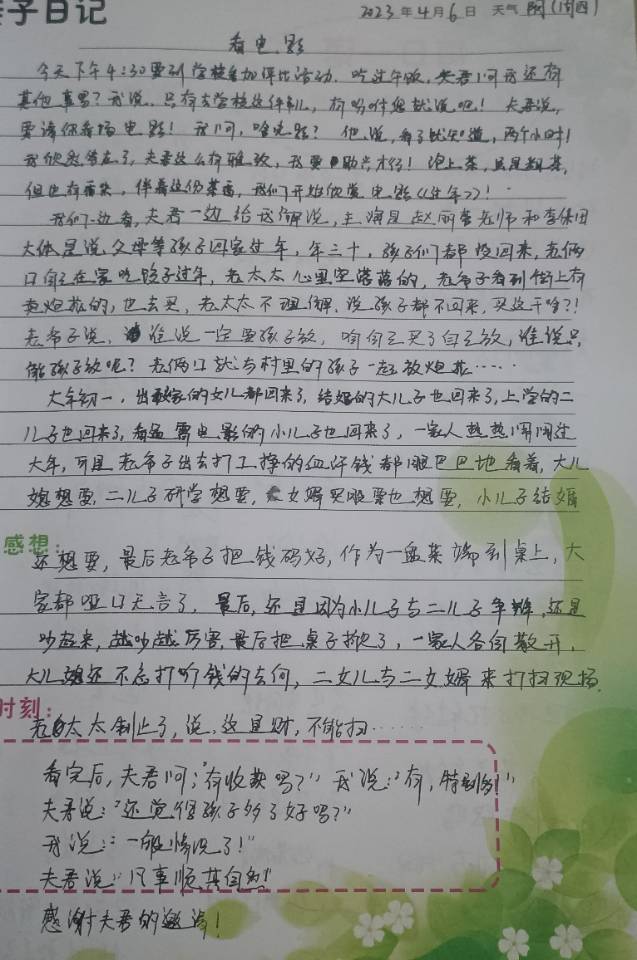 亲子日记
2023年4月6日 天气 阴(周四)
看电影
今天下午4:30要到学校参加评比活动。吃过午饭,夫君问我还有
其他事吗?我说,只有去学校这件事儿,有吩咐您就说吧!夫君说,
要请你看场电影!我问,啥电影?他说,看了就知道,两个小时!
我欣然答应了,夫君这么有雅致,我要助兴才行!泡上茶,虽是粗茶,
但也有香味,伴着这份茶香,我们开始欣赏电影《过年》!
我们一边看,夫君一边给我解说,主演是赵丽蓉老师和李保田
大体是说父母等孩子回家过年,年三十,孩子们都没回来,老俩
口自己在家吃饺子过年,老太太心里空落落的,老爷子看到街上有
卖炮仗的,也去买,老太太不理解,说孩子都不回来,买这干啥?!
老爷子说,谁说一定要孩子放,咱自己买了自己放,谁说只
能孩子放呢?老俩口就与村里的孩子一起放炮仗……
大年初一,出嫁的女儿都回来了,结婚的大儿子也回来了,上学的二
儿子也回来了,看露天电影的小儿子也回来了,一家人热热闹闹过
大年,可是老爷子出去打工挣的血汗钱都眼巴巴地看着,大儿
媳想要,二儿子研学想要,女婿买股票也想要,小儿子结婚
感想:
还想要,最后老爷子把钱码好,作为一盘菜端到桌上,大
家都哑口无言了,最后,还是因为小儿子与二儿子争辩,还是
吵起来,越吵越厉害,最后把桌子掀了,一家人各自散开,
大儿媳还不忘打听钱的去向,二女儿与二女婿来打扫现场,
时刻:
老太太制止了,说,这是财,不能扫……
看完后,夫君问:"有收获吗?"我说:"有,特别多!"
夫君说:"还觉得孩子多了好吗?"
我说:"一般情况了!"
夫君说:"凡事顺其自然"
感谢夫君的邀请!